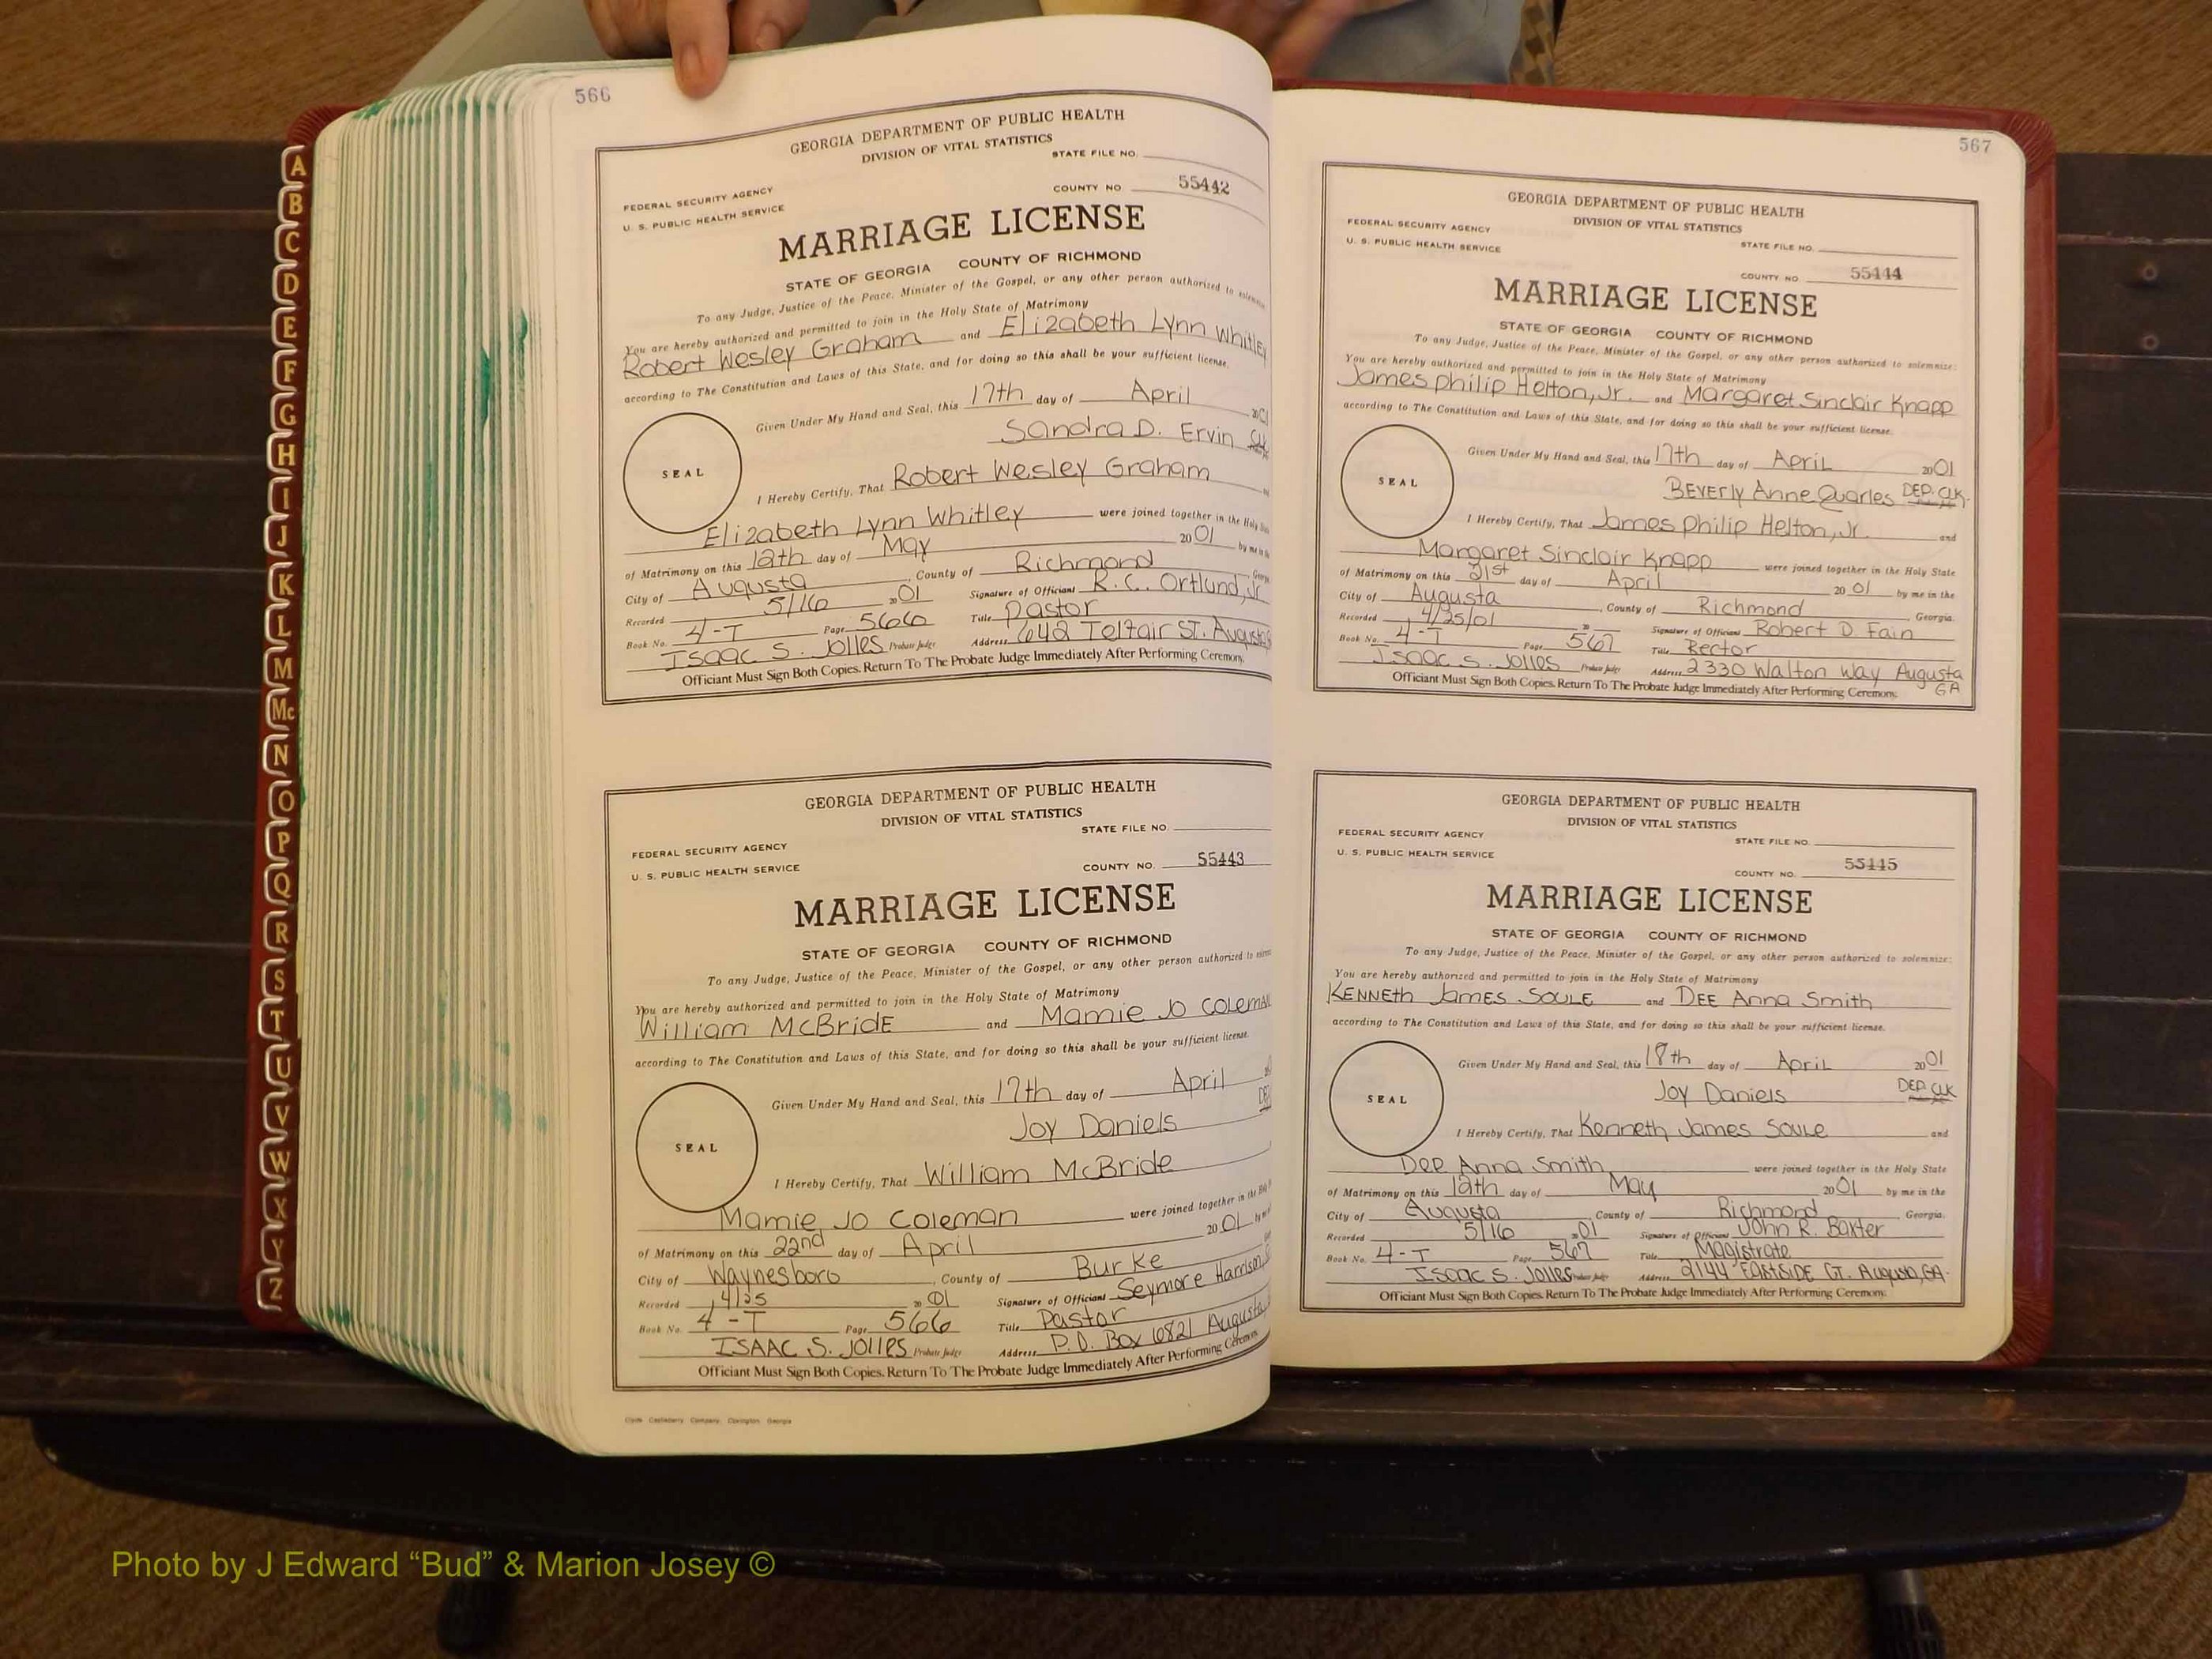 A
B
C
D
E
F
G
H
I
J
K
L
M
Mc
N
O
P
Q
R
S
T
U
V
W
X
Y
Z
566
GEORGIA DEPARTMENT OF PUBLIC HEALTH
DIVISION OF VITAL STATISTICS
STATE FILE NO.
FEDERAL SECURITY AGENCY
U. S. PUBLIC HEALTH SERVICE
COUNTY NO 55442
MARRIAGE LICENSE
STATE OF GEORGIA COUNTY OF RICHMOND
To any Judge, Justice of the Peace, Minister of the Gospel, or any other person authorized to
You are hereby authorized and permitted to join in the Holy State of Matrimony
Robert Wesley Graham and Elizabeth Lynn Whitley
according to The Constitution and Laws of this State, and for doing so this shall be your sufficient license.
Given Under My Hand and Seal, this 17th day of April
Sandra D. Ervin
SEAL
I Hereby Certify, That Robert Wesley Graham
Elizabeth Lynn Whitley were joined together in the
of Matrimony on this 12th day of May 2001 by me in
City of Augusta, County of Richmond
Recorded 5/16 2001 Signature of Officiant R.C. Ortlund, Jr
Book No. 4-T Page 566 Title Pastor
Isaac S. Jolles Probate Judge Address 642 Telfair ST. Augusta
Officiant Must Sign Both Copies. Return To The Probate Judge Immediately After Performing Ceremony.
GEORGIA DEPARTMENT OF PUBLIC HEALTH
DIVISION OF VITAL STATISTICS
STATE FILE NO.
FEDERAL SECURITY AGENCY
U. S. PUBLIC HEALTH SERVICE
COUNTY NO. 55443
MARRIAGE LICENSE
STATE OF GEORGIA COUNTY OF RICHMOND
To any Judge, Justice of the Peace, Minister of the Gospel, or any other person authorized to
You are hereby authorized and permitted to join in the Holy State of Matrimony
William McBride and Mamie Jo Coleman
according to The Constitution and Laws of this State, and for doing so this shall be your sufficient license.
Given Under My Hand and Seal, this 17th day of April
Joy Daniels
SEAL
I Hereby Certify, That William McBride
Mamie Jo Coleman were joined together in the
of Matrimony on this 22nd day of April 2001
City of Waynesboro, County of Burke
Recorded 4/25 2001 Signature of Officiant Seymore Harrison
Book No. 4-T Page 566 Title Pastor
ISAAC S. Jolles Probate Judge Address P.O. Box 6821 Augusta
Officiant Must Sign Both Copies. Return To The Probate Judge Immediately After Performing Ceremony.
Clyde Castleberry Company, Covington, Georgia
567
GEORGIA DEPARTMENT OF PUBLIC HEALTH
DIVISION OF VITAL STATISTICS
FEDERAL SECURITY AGENCY
U. S. PUBLIC HEALTH SERVICE
STATE FILE NO.
COUNTY NO 55444
MARRIAGE LICENSE
STATE OF GEORGIA COUNTY OF RICHMOND
To any Judge, Justice of the Peace, Minister of the Gospel, or any other person authorized to solemnize:
You are hereby authorized and permitted to join in the Holy State of Matrimony
James Philip Helton, Jr. and Margaret Sinclair Knapp
according to The Constitution and Laws of this State, and for doing so this shall be your sufficient license.
Given Under My Hand and Seal, this 17th day of April 2001
BEVERLY Anne Quarles DEP. CLK.
SEAL
I Hereby Certify, That James Philip Helton, Jr. and
Margaret Sinclair Knapp were joined together in the Holy State
of Matrimony on this 21st day of April 2001 by me in the
City of Augusta, County of Richmond Georgia.
Recorded 4/25/01 20 Signature of Officiant Robert D Fain
Book No. 4-T Page 567 Title Rector
Isaac S. Jolles Probate Judge Address 2330 Walton Way Augusta GA
Officiant Must Sign Both Copies. Return To The Probate Judge Immediately After Performing Ceremony.
GEORGIA DEPARTMENT OF PUBLIC HEALTH
DIVISION OF VITAL STATISTICS
FEDERAL SECURITY AGENCY
U. S. PUBLIC HEALTH SERVICE
STATE FILE NO.
COUNTY NO. 55445
MARRIAGE LICENSE
STATE OF GEORGIA COUNTY OF RICHMOND
To any Judge, Justice of the Peace, Minister of the Gospel, or any other person authorized to solemnize:
You are hereby authorized and permitted to join in the Holy State of Matrimony
KENNETH JAMES SOULE and DEE Anna Smith
according to The Constitution and Laws of this State, and for doing so this shall be your sufficient license.
Given Under My Hand and Seal, this 18th day of April 2001
Joy Daniels DEP. CLK
SEAL
I Hereby Certify, That Kenneth James Soule and
Dee Anna Smith were joined together in the Holy State
of Matrimony on this 12th day of May 2001 by me in the
City of Augusta, County of Richmond Georgia.
Recorded 5/16 2001 Signature of Officiant John R. Baxter
Book No. 4-T Page 567 Title Magistrate
Isaac S. Jolles Probate Judge Address 2144 EASTSIDE CT. Augusta, GA.
Officiant Must Sign Both Copies. Return To The Probate Judge Immediately After Performing Ceremony.
Photo by J Edward “Bud” & Marion Josey ©